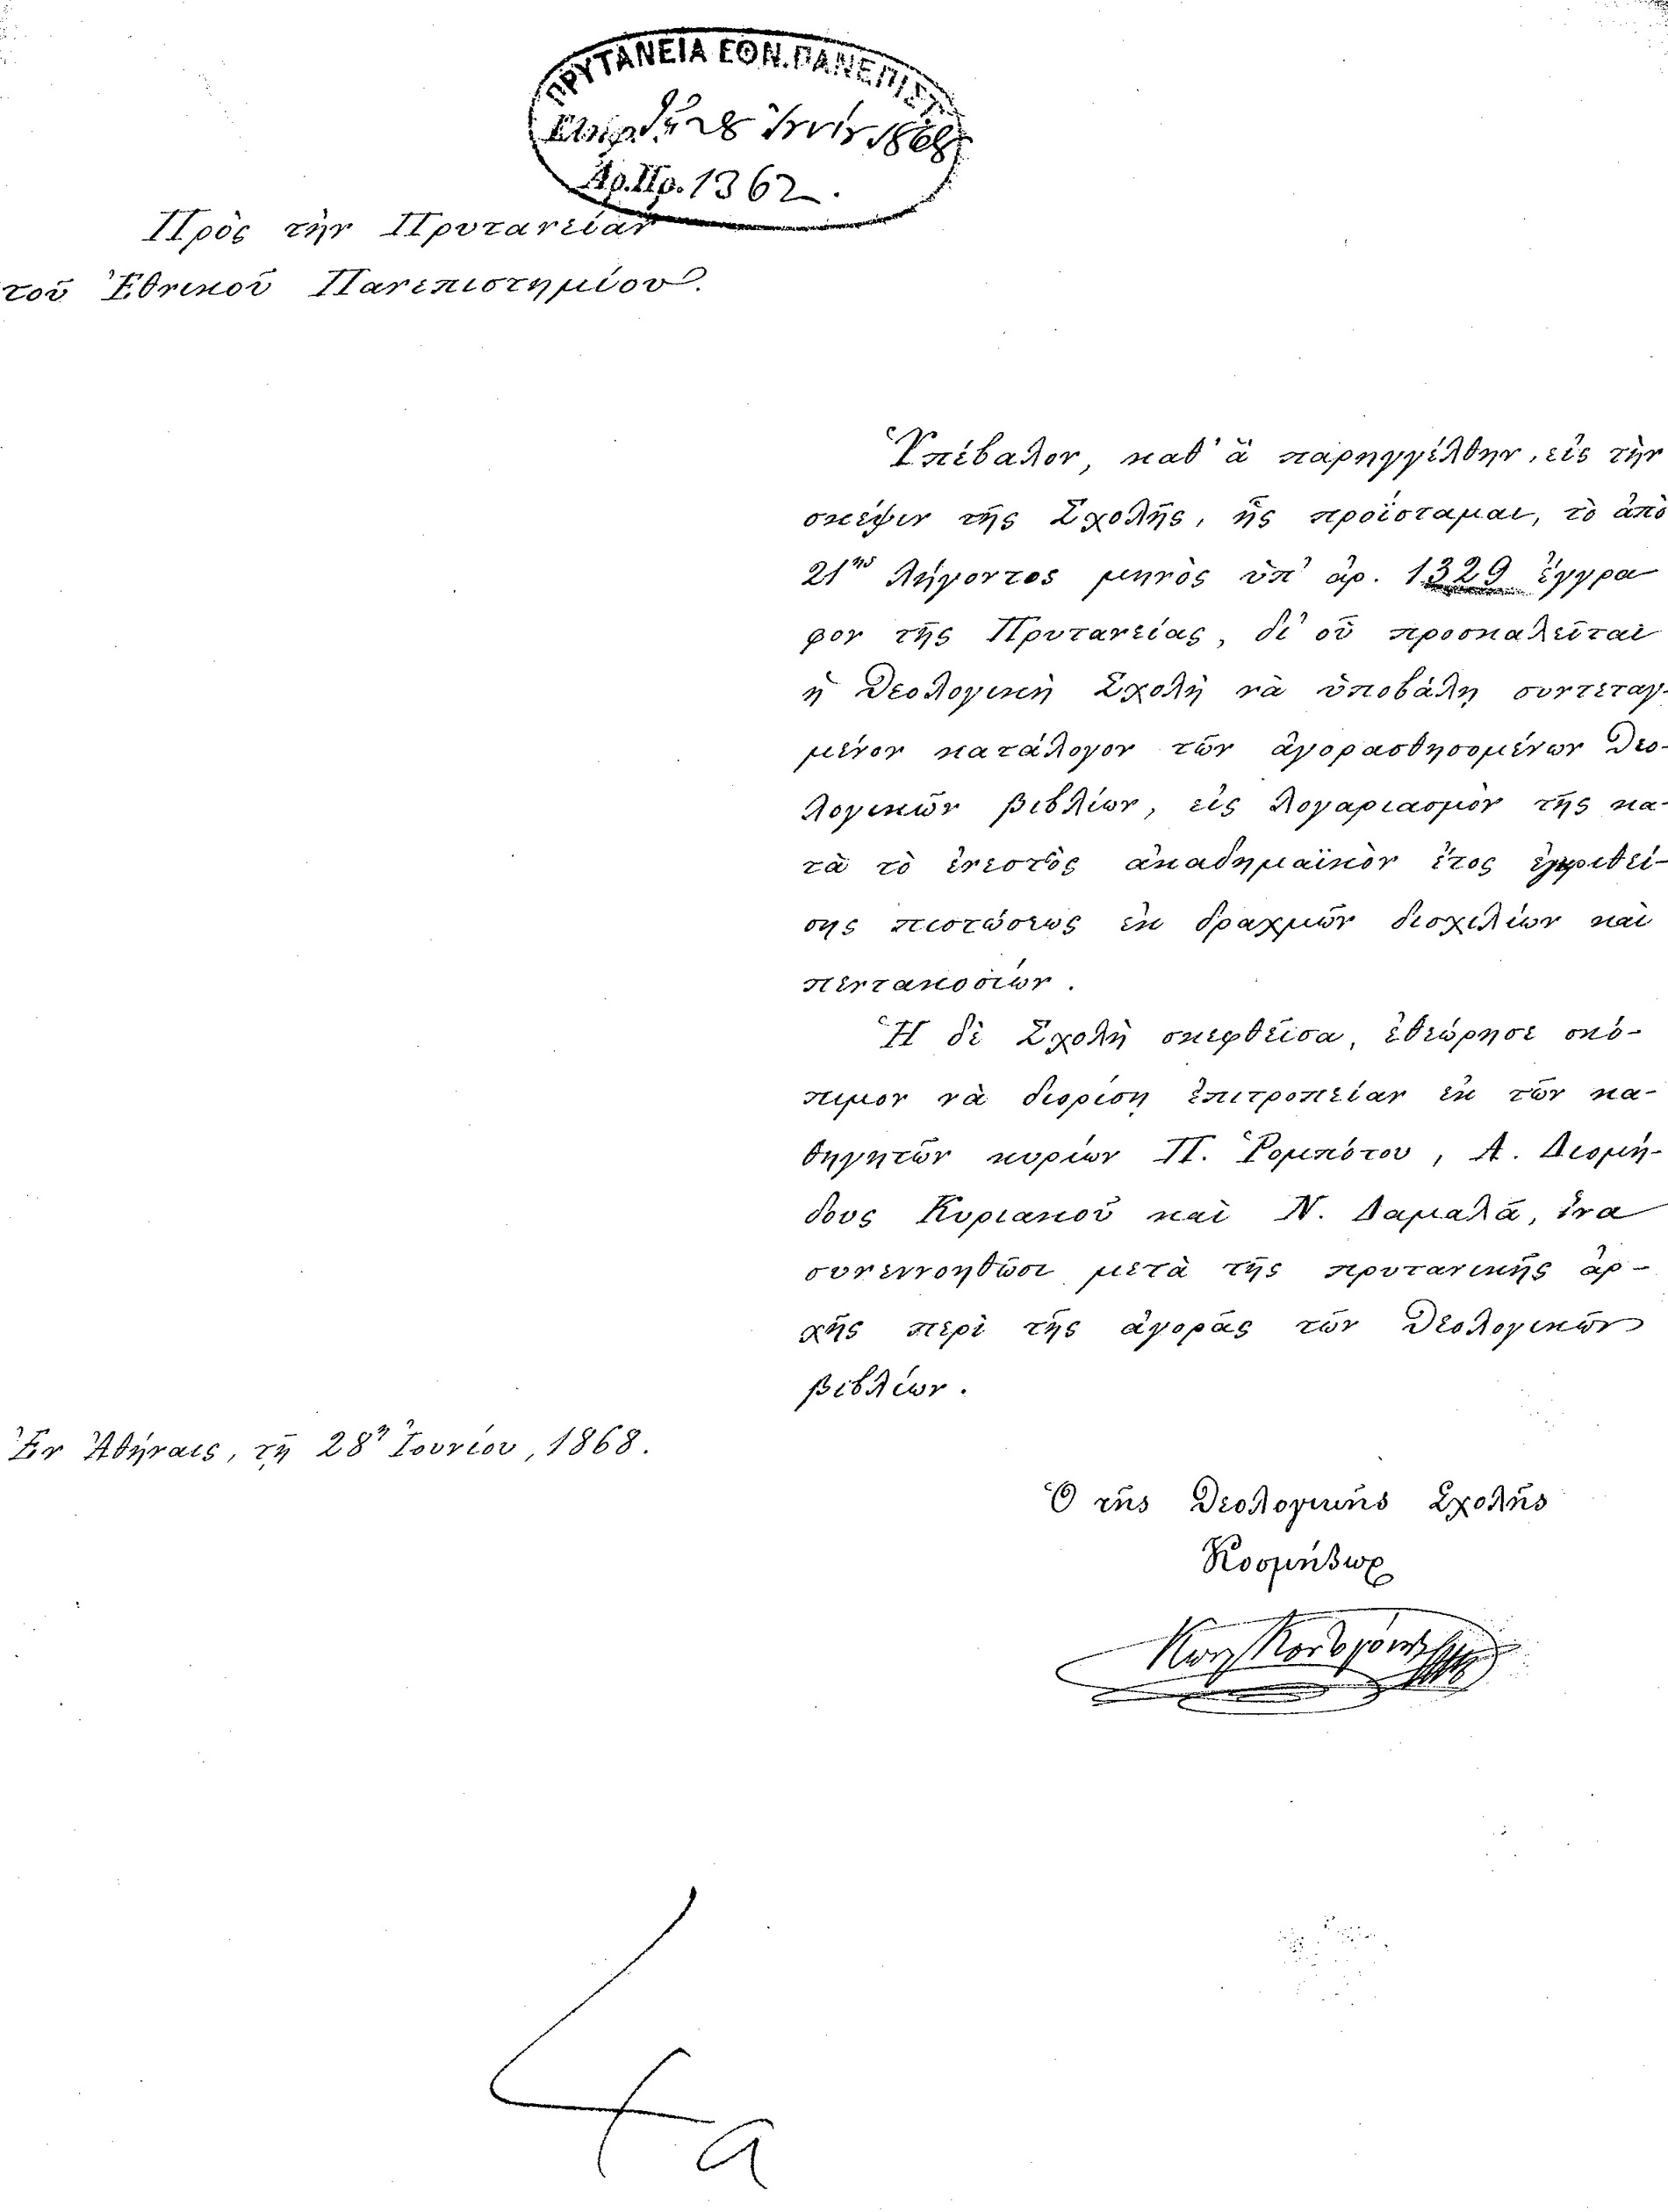 ΠΡΥΤΑΝΕΙΑ ΕΘΝ. ΠΑΝΕΠΙΣΤ.
τῇ 28 Ἰουνίου 1868
Ἀρ. Πρ. 1362.
Πρὸς τὴν Πρυτανείαν
τοῦ Ἐθνικοῦ Πανεπιστημίου.
Ὑπέβαλον, καθ' ἃ παρηγγέλθην, εἰς τὴν
σκέψιν τῆς Σχολῆς, ἧς προΐσταμαι, τὸ ἀπὸ
21ης λήγοντος μηνὸς ὑπ' ἀρ. 1329 ἔγγρα
φον τῆς Πρυτανείας, δι' οὗ προσκαλεῖται
ἡ Θεολογικὴ Σχολὴ νὰ ὑποβάλῃ συντεταγ-
μένον κατάλογον τῶν ἀγορασθησομένων Θεο-
λογικῶν βιβλίων, εἰς λογαριασμὸν τῆς κα-
τὰ τὸ ἐνεστὸς ἀκαδημαϊκὸν ἔτος ἐγκριθεί-
σης πιστώσεως ἐκ δραχμῶν δισχιλίων καὶ
πεντακοσίων.
Ἡ δὲ Σχολὴ σκεφθεῖσα, ἐθεώρησε σκό-
πιμον νὰ διορίσῃ ἐπιτροπείαν ἐκ τῶν κα-
θηγητῶν κυρίων Π. Ῥομπότου, Α. Διομή-
δους Κυριακοῦ καὶ Ν. Δαμαλᾶ, ἵνα
συνεννοηθῶσι μετὰ τῆς πρυτανικῆς ἀρ-
χῆς περὶ τῆς ἀγορᾶς τῶν Θεολογικῶν
βιβλίων.
Ἐν Ἀθήναις, τῇ 28ῃ Ἰουνίου, 1868.
Ὁ τῆς Θεολογικῆς Σχολῆς
Κοσμήτωρ
4α